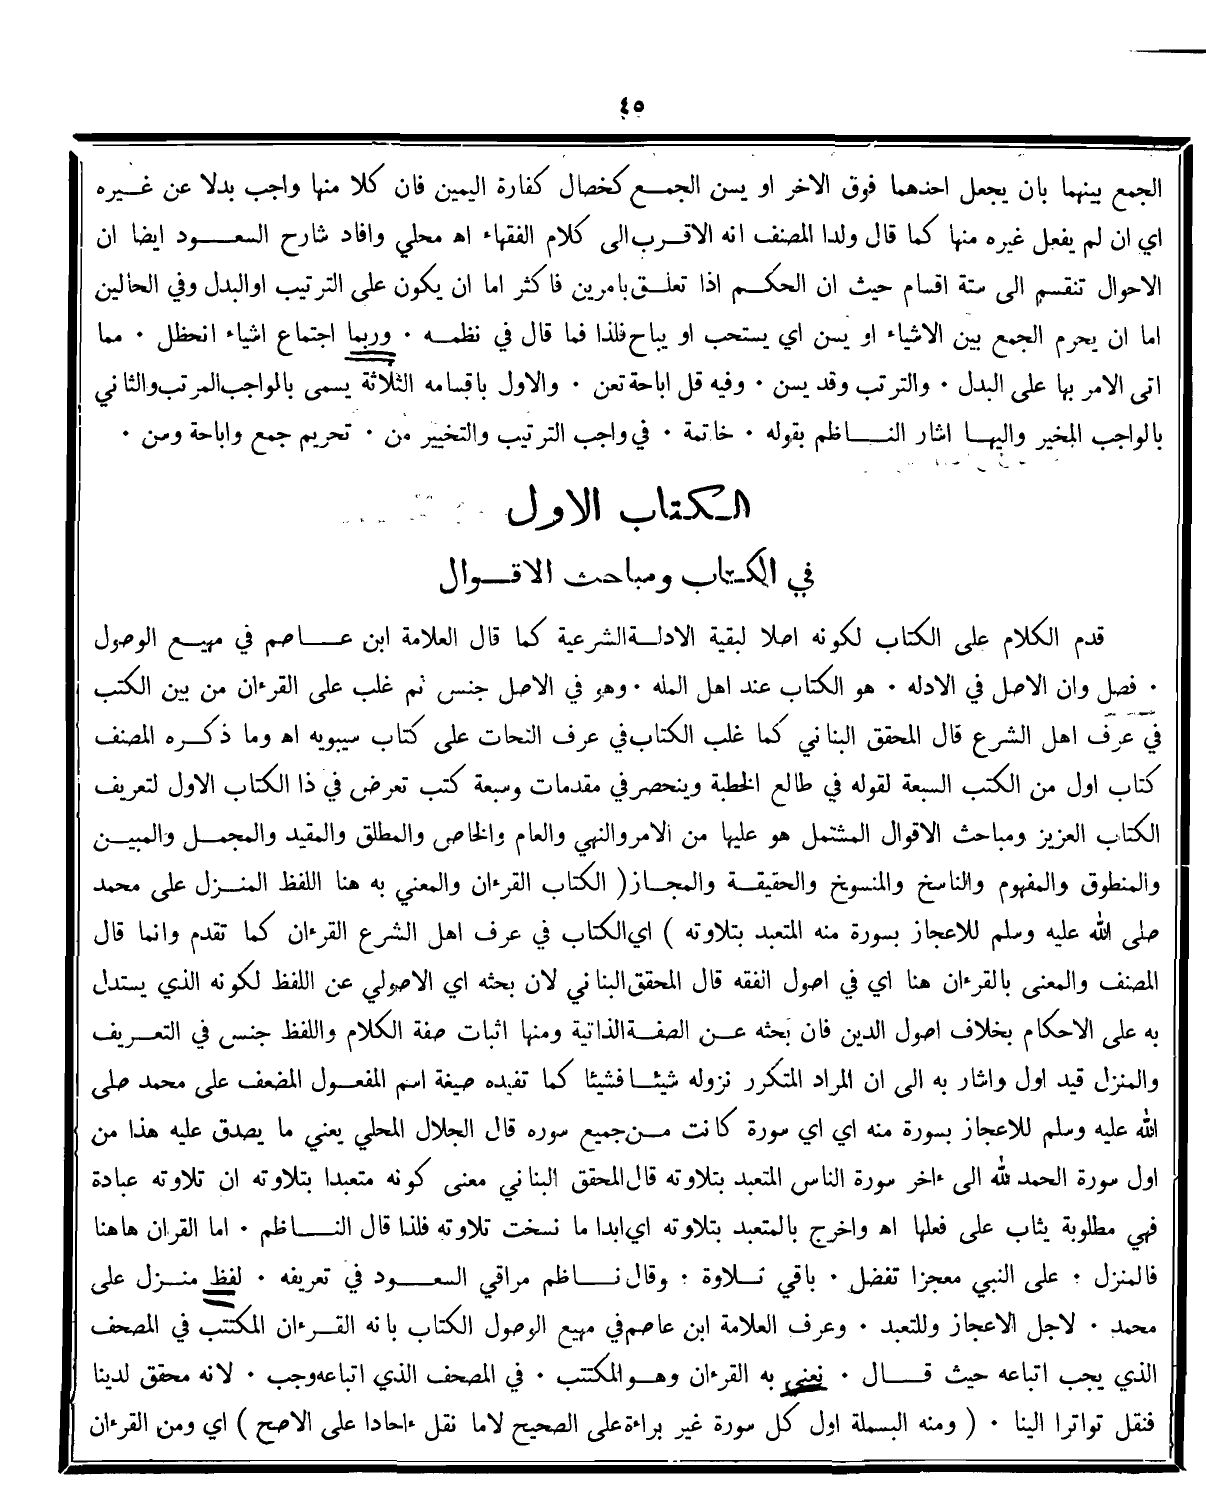 ٤٥
الجمع بينهما بان يجعل احدهما فوق الاخر او يسن الجمع كخصال كفارة اليمين فان كلا منها واجب بدلا عن غيره
اي ان لم يفعل غيره منها كما قال ولدا المصنف انه الاقرب الى كلام الفقهاء اه محلي وافاد شارح السعود ايضا ان
الاحوال تنقسم الى ستة اقسام حيث ان الحكم اذا تعلق بامرين فاكثر اما ان يكون على الترتيب او البدل وفي الحالين
اما ان يحرم الجمع بين الاشياء او يسن اي يستحب او يباح فلذا فما قال في نظمه ٠ وربما اجتماع اشياء انحظل ٠ مما
اتى الامر بها على البدل ٠ والترتب وقد يسن ٠ وفيه قل اباحة تعن ٠ والاول باقسامه الثلاثة يسمى بالواجب المرتب والثاني
بالواجب المخير واليها اشار الناظم بقوله ٠ خاتمة ٠ في واجب الترتيب والتخيير من ٠ تحريم جمع واباحة وسن ٠
الكتاب الاول
في الكتاب ومباحث الاقوال
قدم الكلام على الكتاب لكونه اصلا لبقية الادلة الشرعية كما قال العلامة ابن عاصم في مهيع الوصول
٠ فصل وان الاصل في الادله ٠ هو الكتاب عند اهل المله ٠ وهو في الاصل جنس ثم غلب على القرءان من بين الكتب
في عرف اهل الشرع قال المحقق البناني كما غلب الكتاب في عرف النحات على كتاب سيبويه اه وما ذكره المصنف
كتاب اول من الكتب السبعة لقوله في طالع الخطبة وينحصر في مقدمات وسبعة كتب تعرض في ذا الكتاب الاول لتعريف
الكتاب العزيز ومباحث الاقوال المشتمل هو عليها من الامر والنهي والعام والخاص والمطلق والمقيد والمجمل والمبين
والمنطوق والمفهوم والناسخ والمنسوخ والحقيقة والمجاز ( الكتاب القرءان والمعني به هنا اللفظ المنزل على محمد
صلى الله عليه وسلم للاعجاز بسورة منه المتعبد بتلاوته ) اي الكتاب في عرف اهل الشرع القرءان كما تقدم وانما قال
المصنف والمعنى بالقرءان هنا اي في اصول الفقه قال المحقق البناني لان بحثه اي الاصولي عن اللفظ لكونه الذي يستدل
به على الاحكام بخلاف اصول الدين فان بحثه عن الصفة الذاتية ومنها اثبات صفة الكلام واللفظ جنس في التعريف
والمنزل قيد اول واشار به الى ان المراد المتكرر نزوله شيئا فشيئا كما تفيده صيغة اسم المفعول المضعف على محمد صلى
الله عليه وسلم للاعجاز بسورة منه اي اي سورة كانت من جميع سوره قال الجلال المحلي يعني ما يصدق عليه هذا من
اول سورة الحمد لله الى ءاخر سورة الناس المتعبد بتلاوته قال المحقق البناني معنى كونه متعبدا بتلاوته ان تلاوته عبادة
فهي مطلوبة يثاب على فعلها اه واخرج بالمتعبد بتلاوته اي ابدا ما نسخت تلاوته فلذا قال الناظم ٠ اما القران هاهنا
فالمنزل ؛ على النبي معجزا تفضل ٠ باقي تلاوة ؛ وقال ناظم مراقي السعود في تعريفه ٠ لفظ منزل على
محمد ٠ لاجل الاعجاز وللتعبد ٠ وعرف العلامة ابن عاصم في مهيع الوصول الكتاب بانه القرءان المكتتب في المصحف
الذي يجب اتباعه حيث قال ٠ نعني به القرءان وهو المكتتب ٠ في المصحف الذي اتباعه وجب ٠ لانه محقق لدينا
فنقل تواترا الينا ٠ ( ومنه البسملة اول كل سورة غير براءة على الصحيح لا ما نقل ءاحادا على الاصح ) اي ومن القرءان